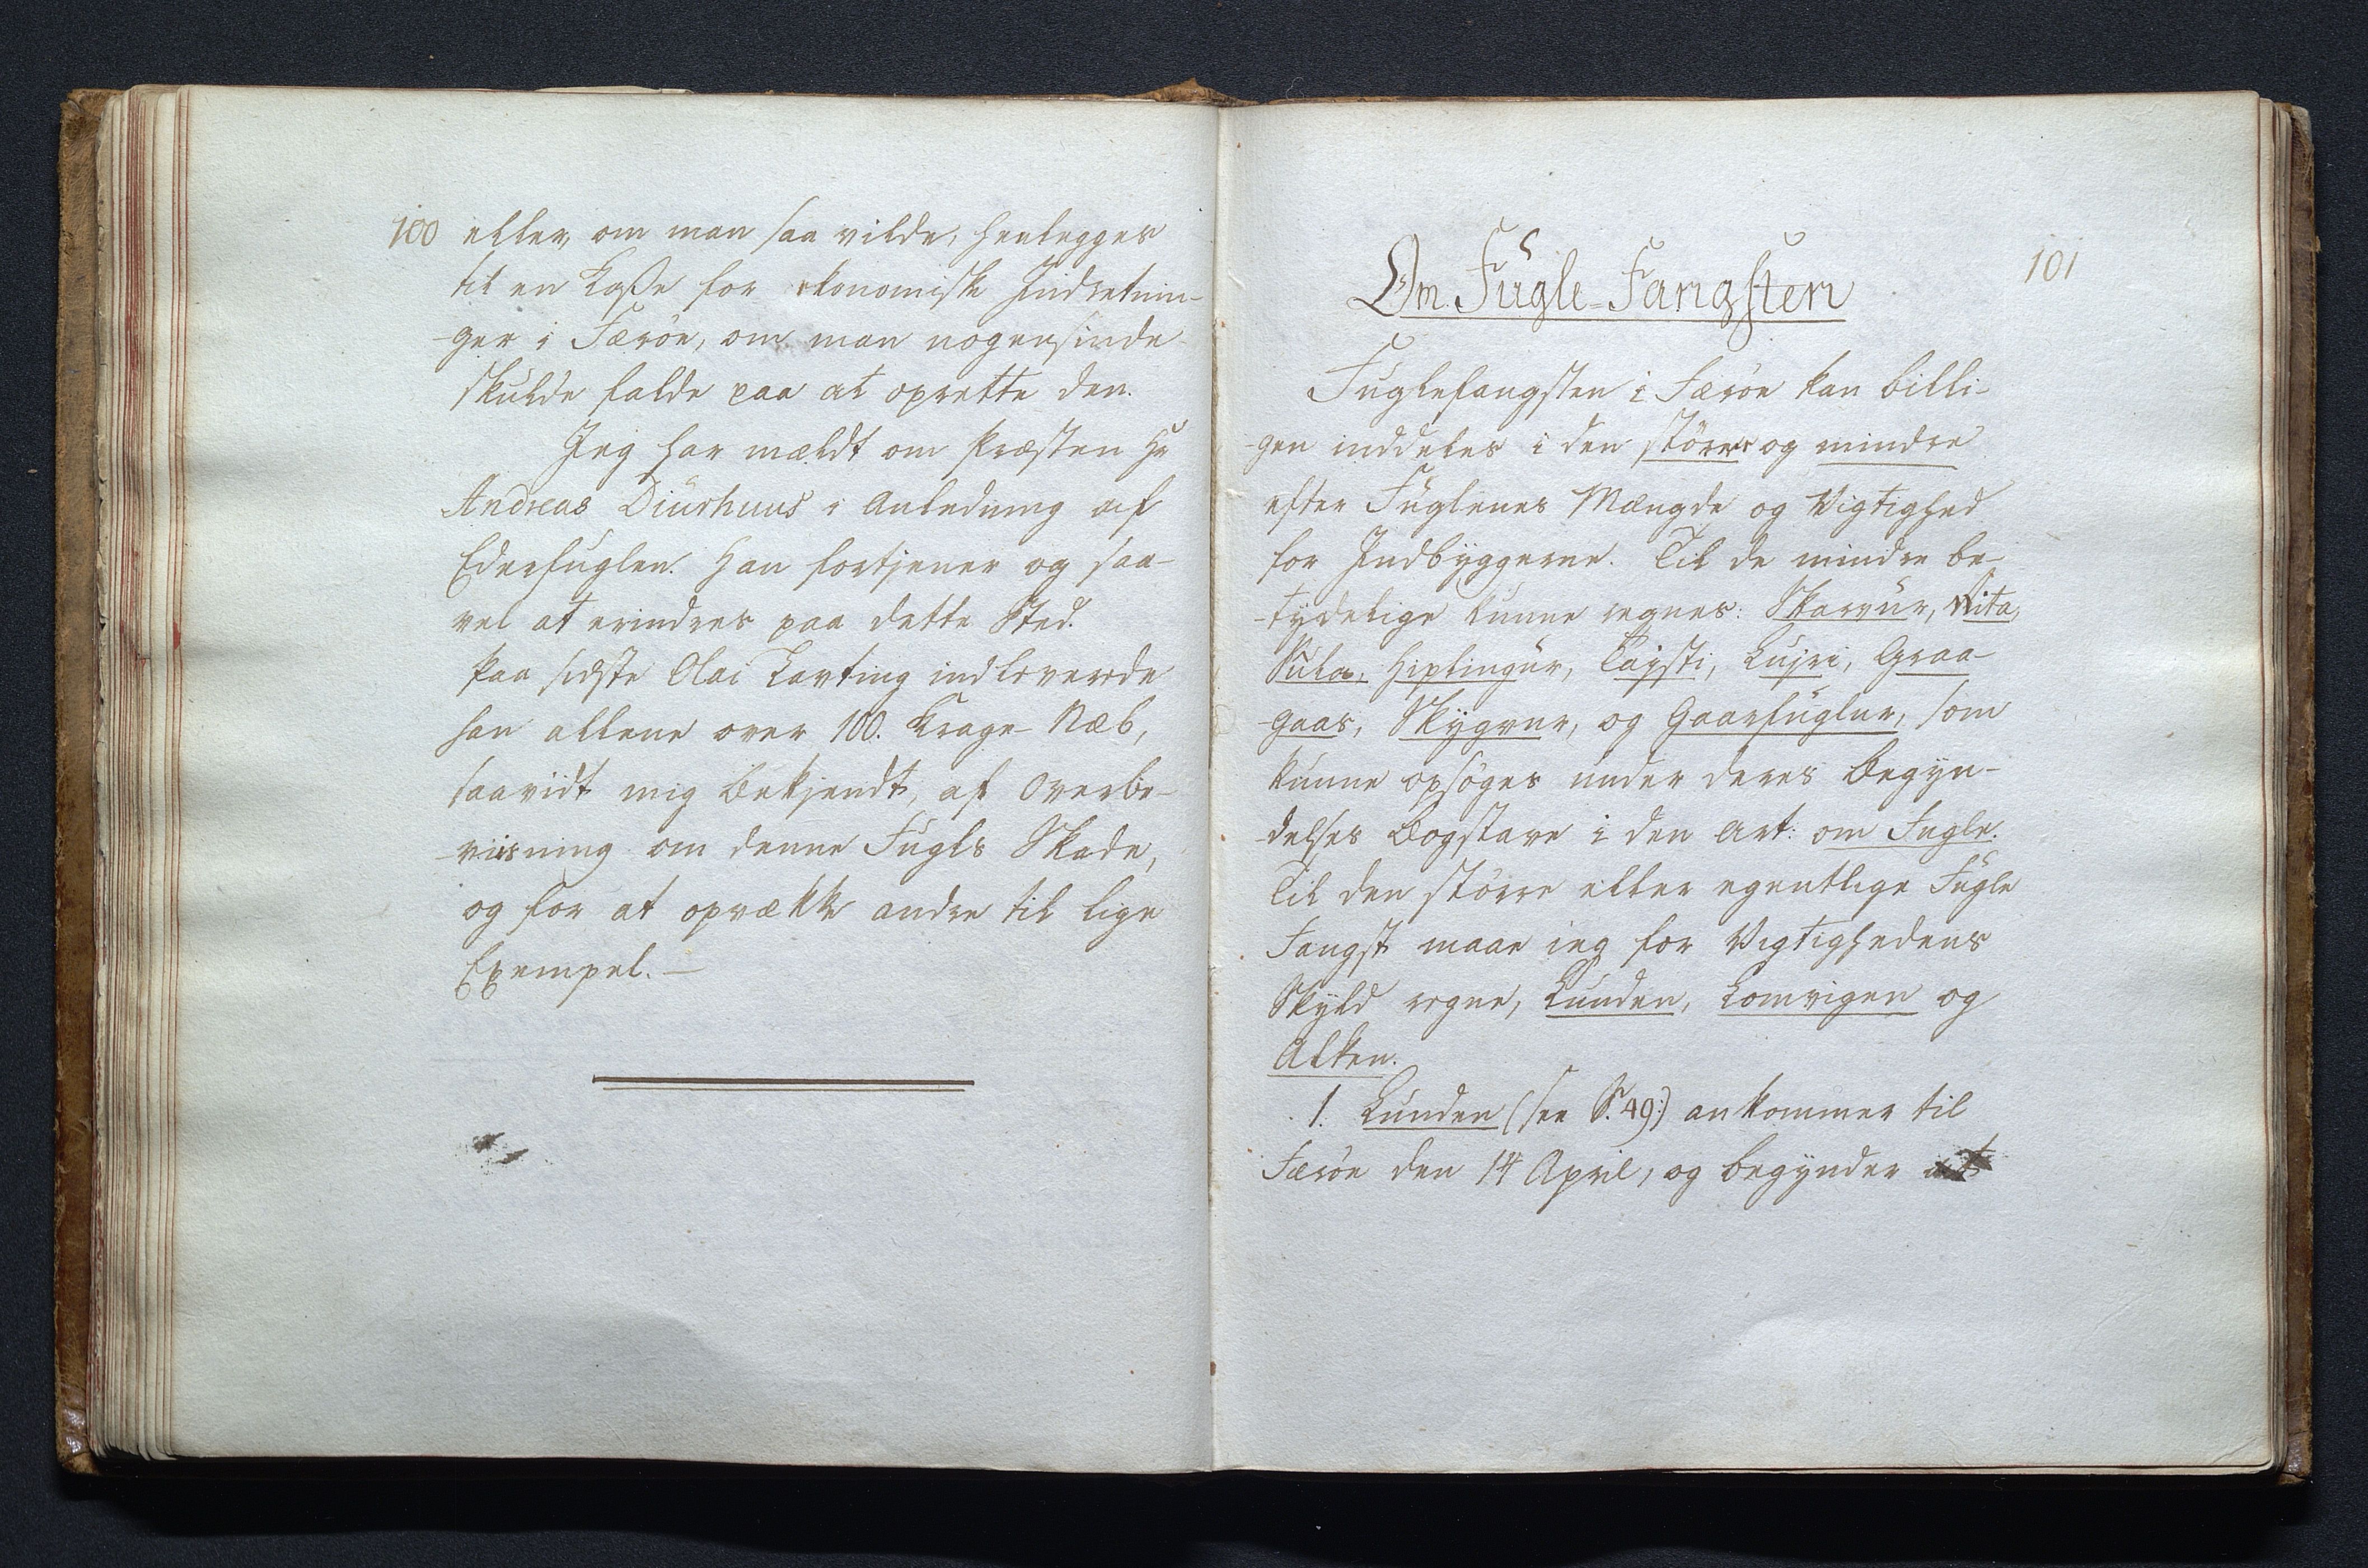 100
eller, om man saa vilde, henlegges
til en Kasse for økonomiske Indretnin-
-ger i Færöe, om man nogensinde
skulde falde paa at oprette den.
Jeg har mældt om Præsten Hr
Andreas Diürhuus i Anledning af
Ederfuglen. Han fortjener og saa-
vel at erindres paa dette Sted.
Paa sidste Olai Lavting indleverede
han allene over 100. Krage-Næb,
saavidt mig bekjendt, af Overbe-
-viisning om denne Fugls Skade,
og for at opvække andre til lige
Exempel. —
101
Om Fugle-Fangsten
Fuglefangsten i Færöe kan billi-
-gen inddeles i den större og mindre
efter Fuglenes Mængde og Vigtighed
for Indbyggerne. Til de mindre be-
-tydelige kunne regnes: Skarvur, Rita,
Sula, Hiplingur, Tajsti, Lujri, Graa-
-gaas, Skÿgvur, og Gaarfuglur, som
kunne opsöges under deres Begyn-
-delses Bogstave i den Art: om Fugle.
Til den större eller egentlige Fugle
Fangst maae ieg for Vigtighedens
Skyld regne, Lunden, Lomvigen og
Alken.
1. Lunden (see S. 49:) ankommer til
Færöe den 14 April, og begynder at